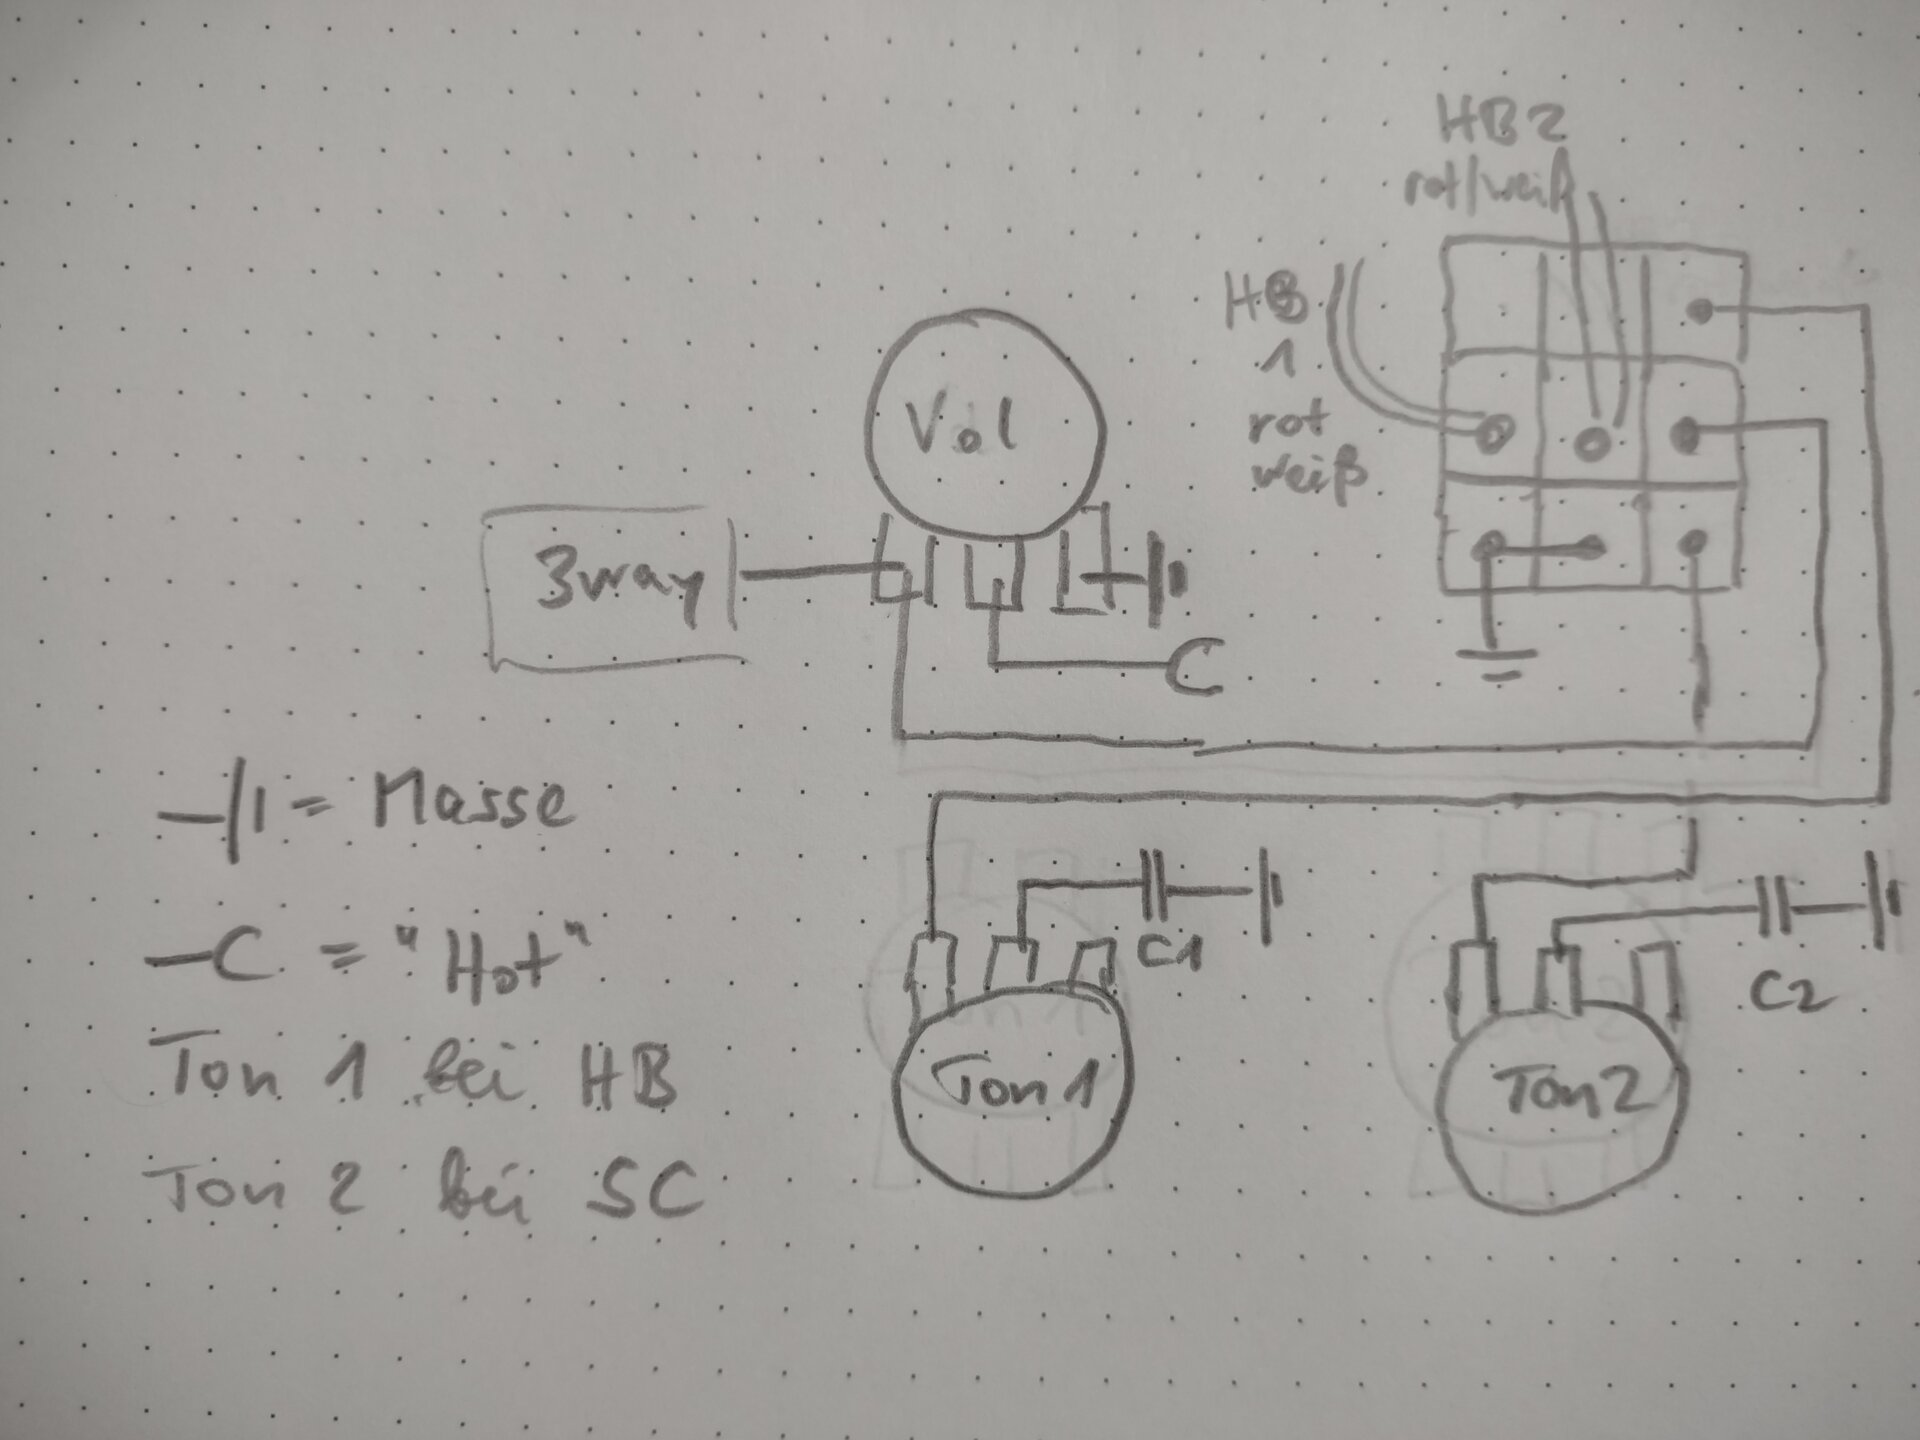 HB2
rot/weiß
HB
1
rot
weiß
Vol
3way
C
= Masse
C = "Hot"
Ton 1 bei HB
Ton 2 bei SC
C1
Ton 1
C2
Ton 2